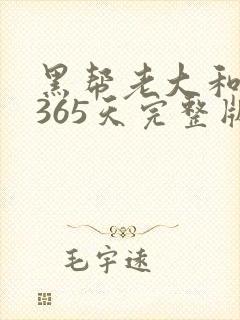 黑帮老大和
365天完整版
毛宇速